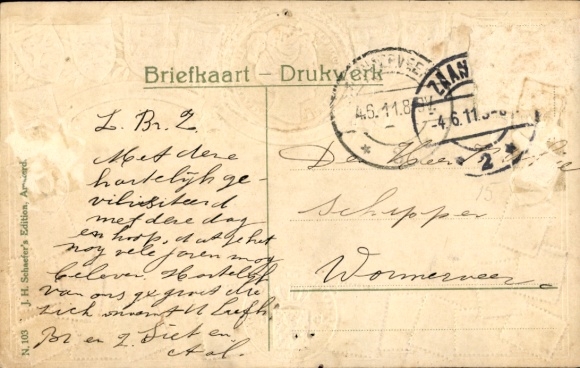 Briefkaart – Drukwerk
4.6.11.8
ZAAN
4.6.11.
2
L. Br. Z.
Met deze
hartelijk ge-
feliciteerd
met deze dag
en hoop, dat je het
nog vele jaren mog
beleven Hartelijk
van ons gegroet die
zich noemt U liefh
Br en Z. Siet en
Den Heer
Schipper
Wormerveer
15
N. 103 J. H. Schaefer's Edition, Amsterd.